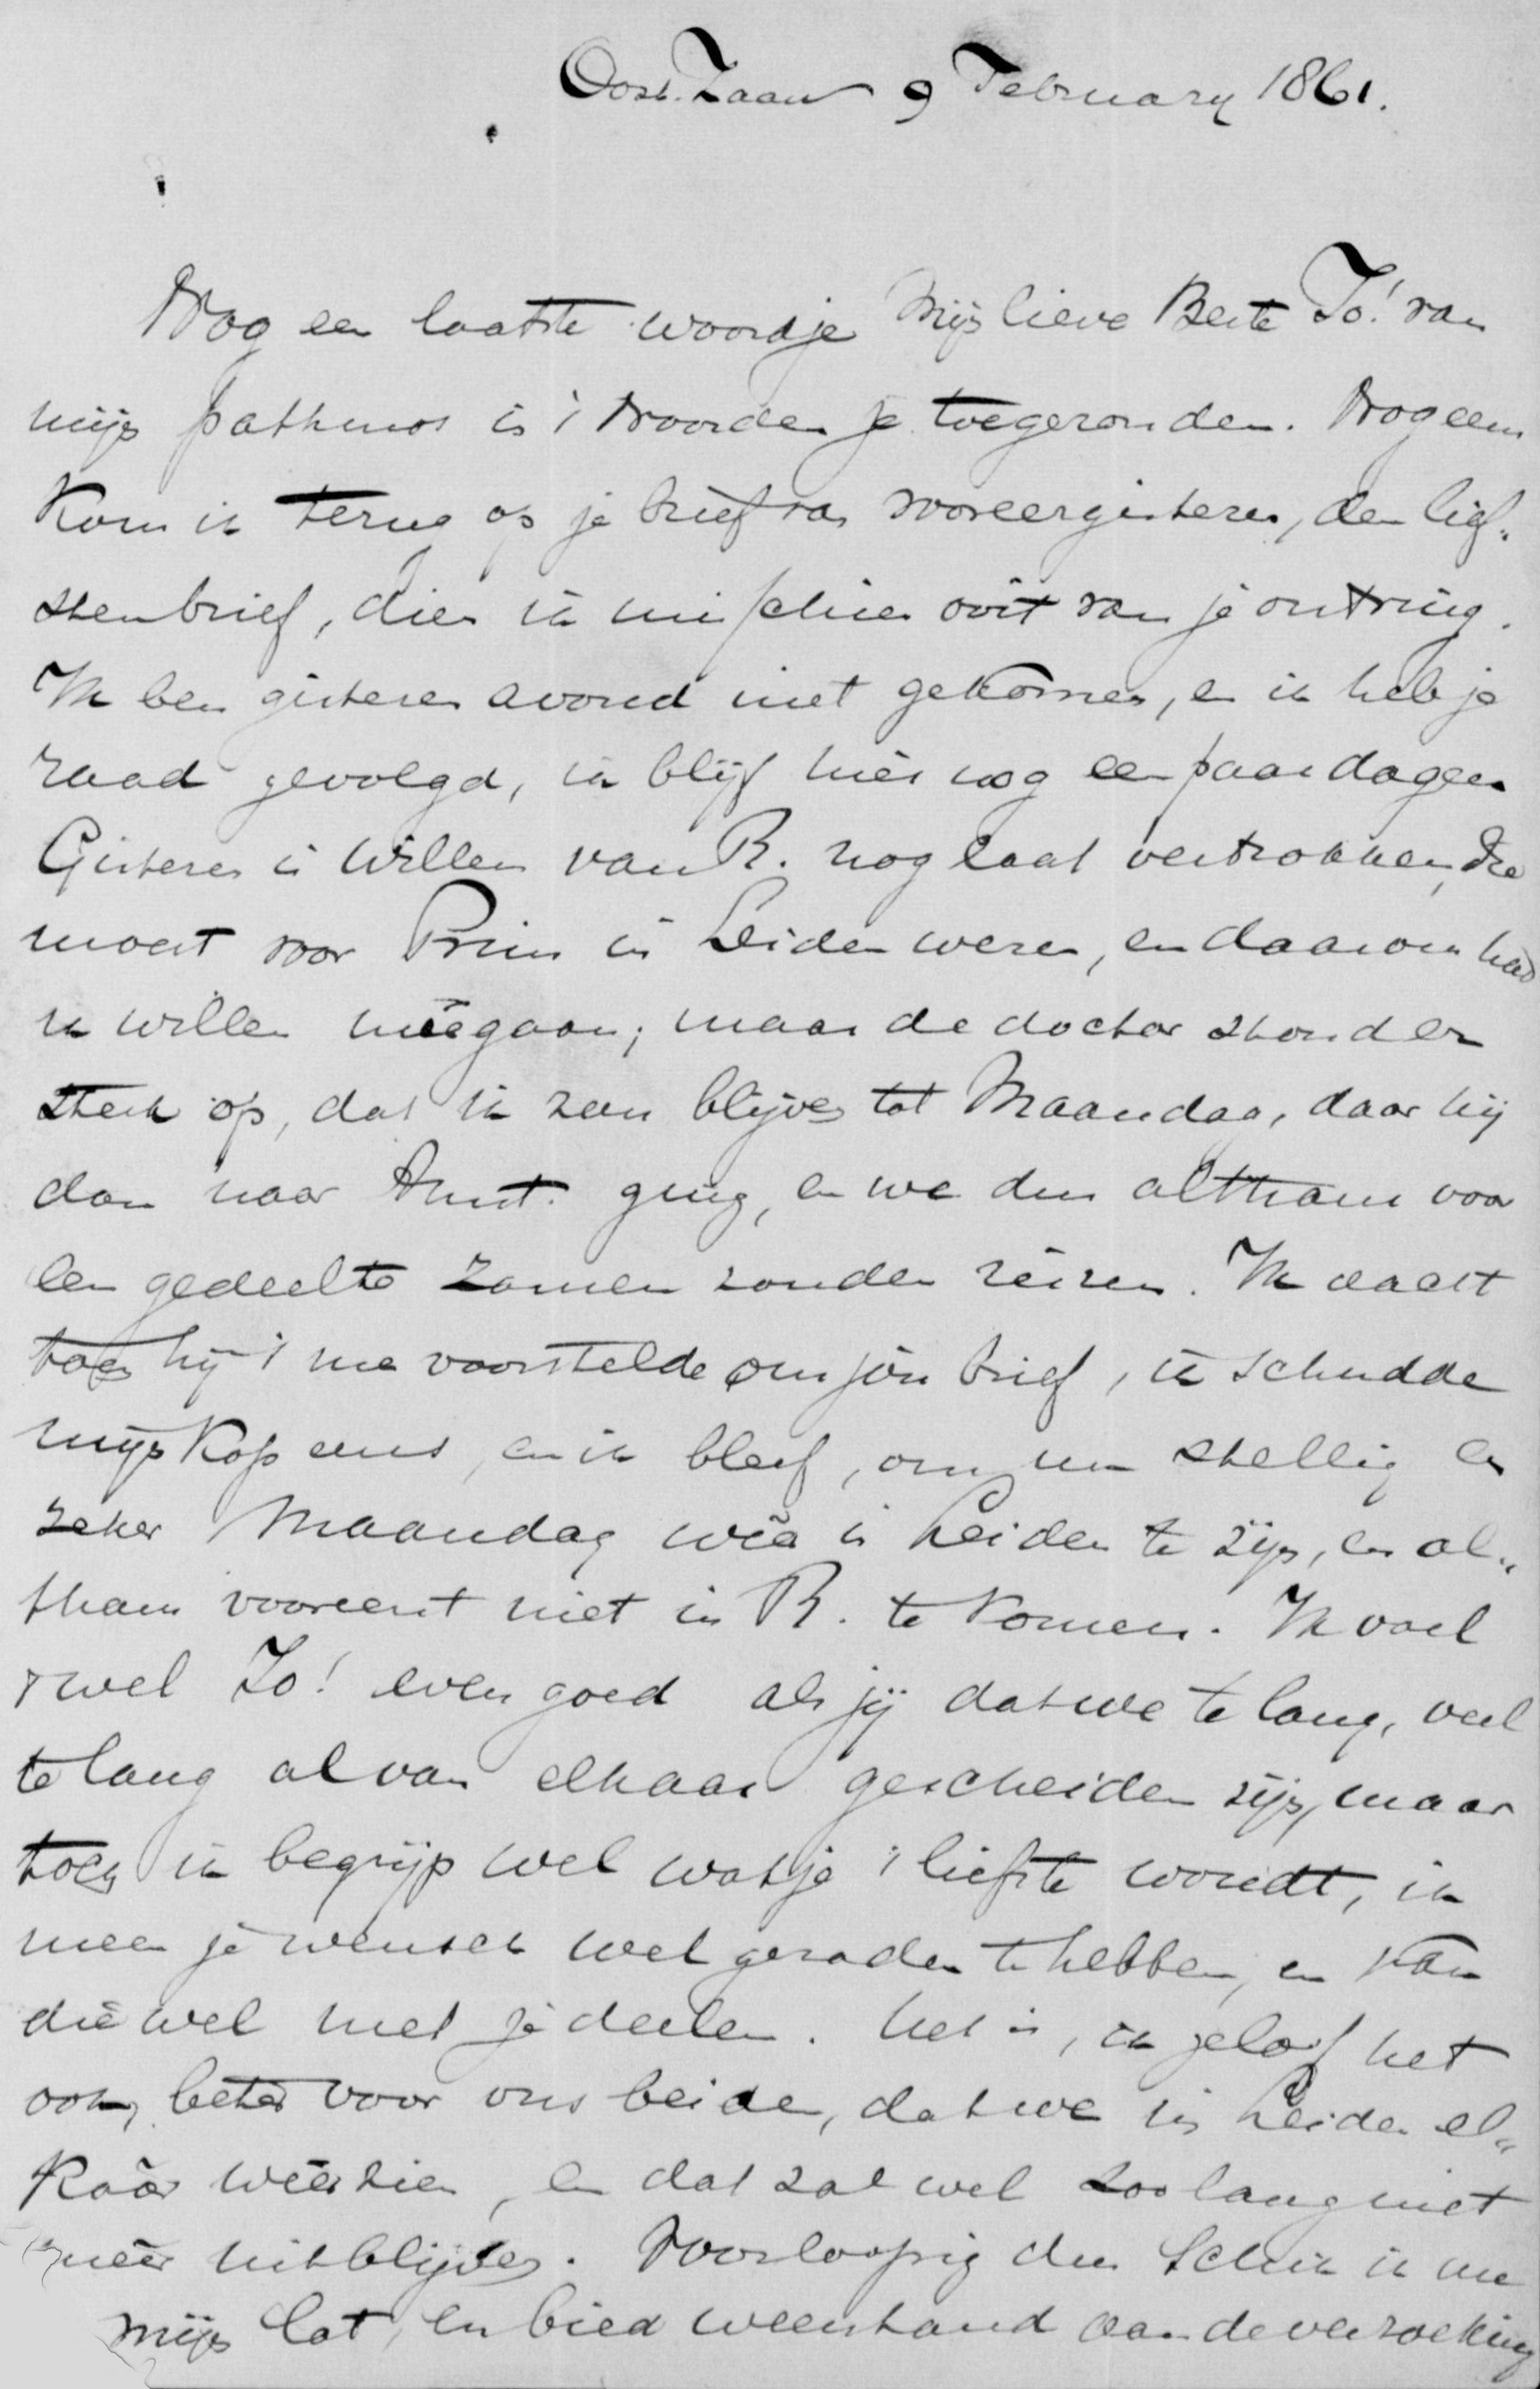 Oost-Zaan 9 February 1861.
Nog een laatste woordje mijn lieve Beste Jo! van
mijn pathmos in 't Noorden je toegezonden. Nog eens
kom ik terug op je brief van voreergisteren, den lief„
sten brief, dien ik misschien ooit van je ontving.
Ik ben gisteren avond niet gekomen, en ik heb je
raad gevolgd, ik blijf hier nog een paar dagen
Gisteren is Willem van R. nog laat vertrokken, die
moest voor Prins in Leiden wezen, en daarom had
ik willen meêgaan; maar de doctor stond er
sterk op, dat ik zou blijven tot Maandag, daar hij
dan naar Amst. ging, en we dus althans voor
een gedeelte zamen zouden reizen. Ik dacht
toen hij 't me voorstelde om jou brief, ik schudde
mijn kop eens, en ik bleef, om nu stellig en
zeker Maandag weêr in Leiden te zijn, en al„
thans vooreerst niet in R. te komen. Ik voel
't wel Jo! even goed als jij dat we te lang, veel
te lang al van elkaar gescheiden zijn, maar
toch ik begrijp wel wat je 't liefste woudt, ik
meen je wensch wel geraden te hebben, en kan
die wel met je deelen. Het is, ik geloof het
ook, beter voor ons beiden, dat we in Leiden el„
kaâr weêrzien, en dat zal wel zoo lang niet
meêr uitblijven. Voorloopig dus schik ik me
mijn lot, en bied weerstand aan de verzoeking